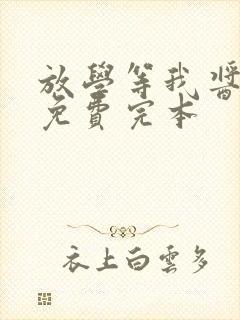 放學等我醬
免費完本
衣上白雲多